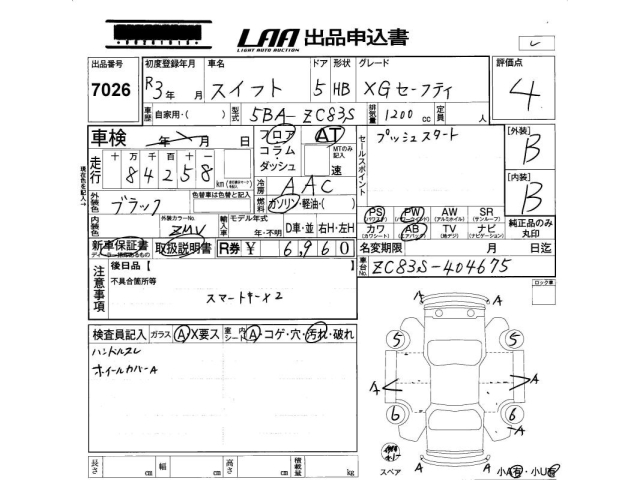 LAA 出品申込書
LIGHT AUTO AUCTION
出品番号 初度登録年月 車名 ドア 形状 グレード 評価点
7026 R3年 月 スイフト 5 HB XGセーフティ 4
車歴 自家用・( ) 型式 5BA-ZC83S 排気量 1200 cc 定員 人
車検 年 月 日 フロア コラム・ダッシュ AT MTのみ記入 速
セールスポイント プッシュスタート
[外装] B
[内装] B
走行 十 万 千 百 十 一
84258 km
冷房 AAC
外装色 ブラック 色替車は色替と記入
燃料 ガソリン・軽油・( )
PS PW AW SR
(パワステ) (パワーウインド) (アルミホイル) (サンルーフ)
カワ AB TV ナビ
(カワシート) (エアバッグ) (地デジ) (ナビゲーション)
純正品のみ丸印
内装色 外装カラーNo. ZMV 輸入車 モデル年式 年・不明 D車・並 右H・左H
新車保証書 取扱説明書 R券 ¥ 6,960
名変期限 月 日迄
車台No. ZC83S-404675
注意事項 後日品【
不具合箇所等
スマートキー×2
ロック車
検査員記入 ガラス A・X要ス 車内シート A・コゲ・穴・汚れ・破れ
ハンドルスレ
ホイールカバーA
A A
5 5
A A
6 6
A A
スペア 小A有・小U有
長さ cm 幅 cm 高さ cm 積載量 kg